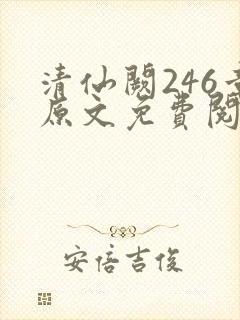 清仙阙246章
原文免费阅
安倍吉俊